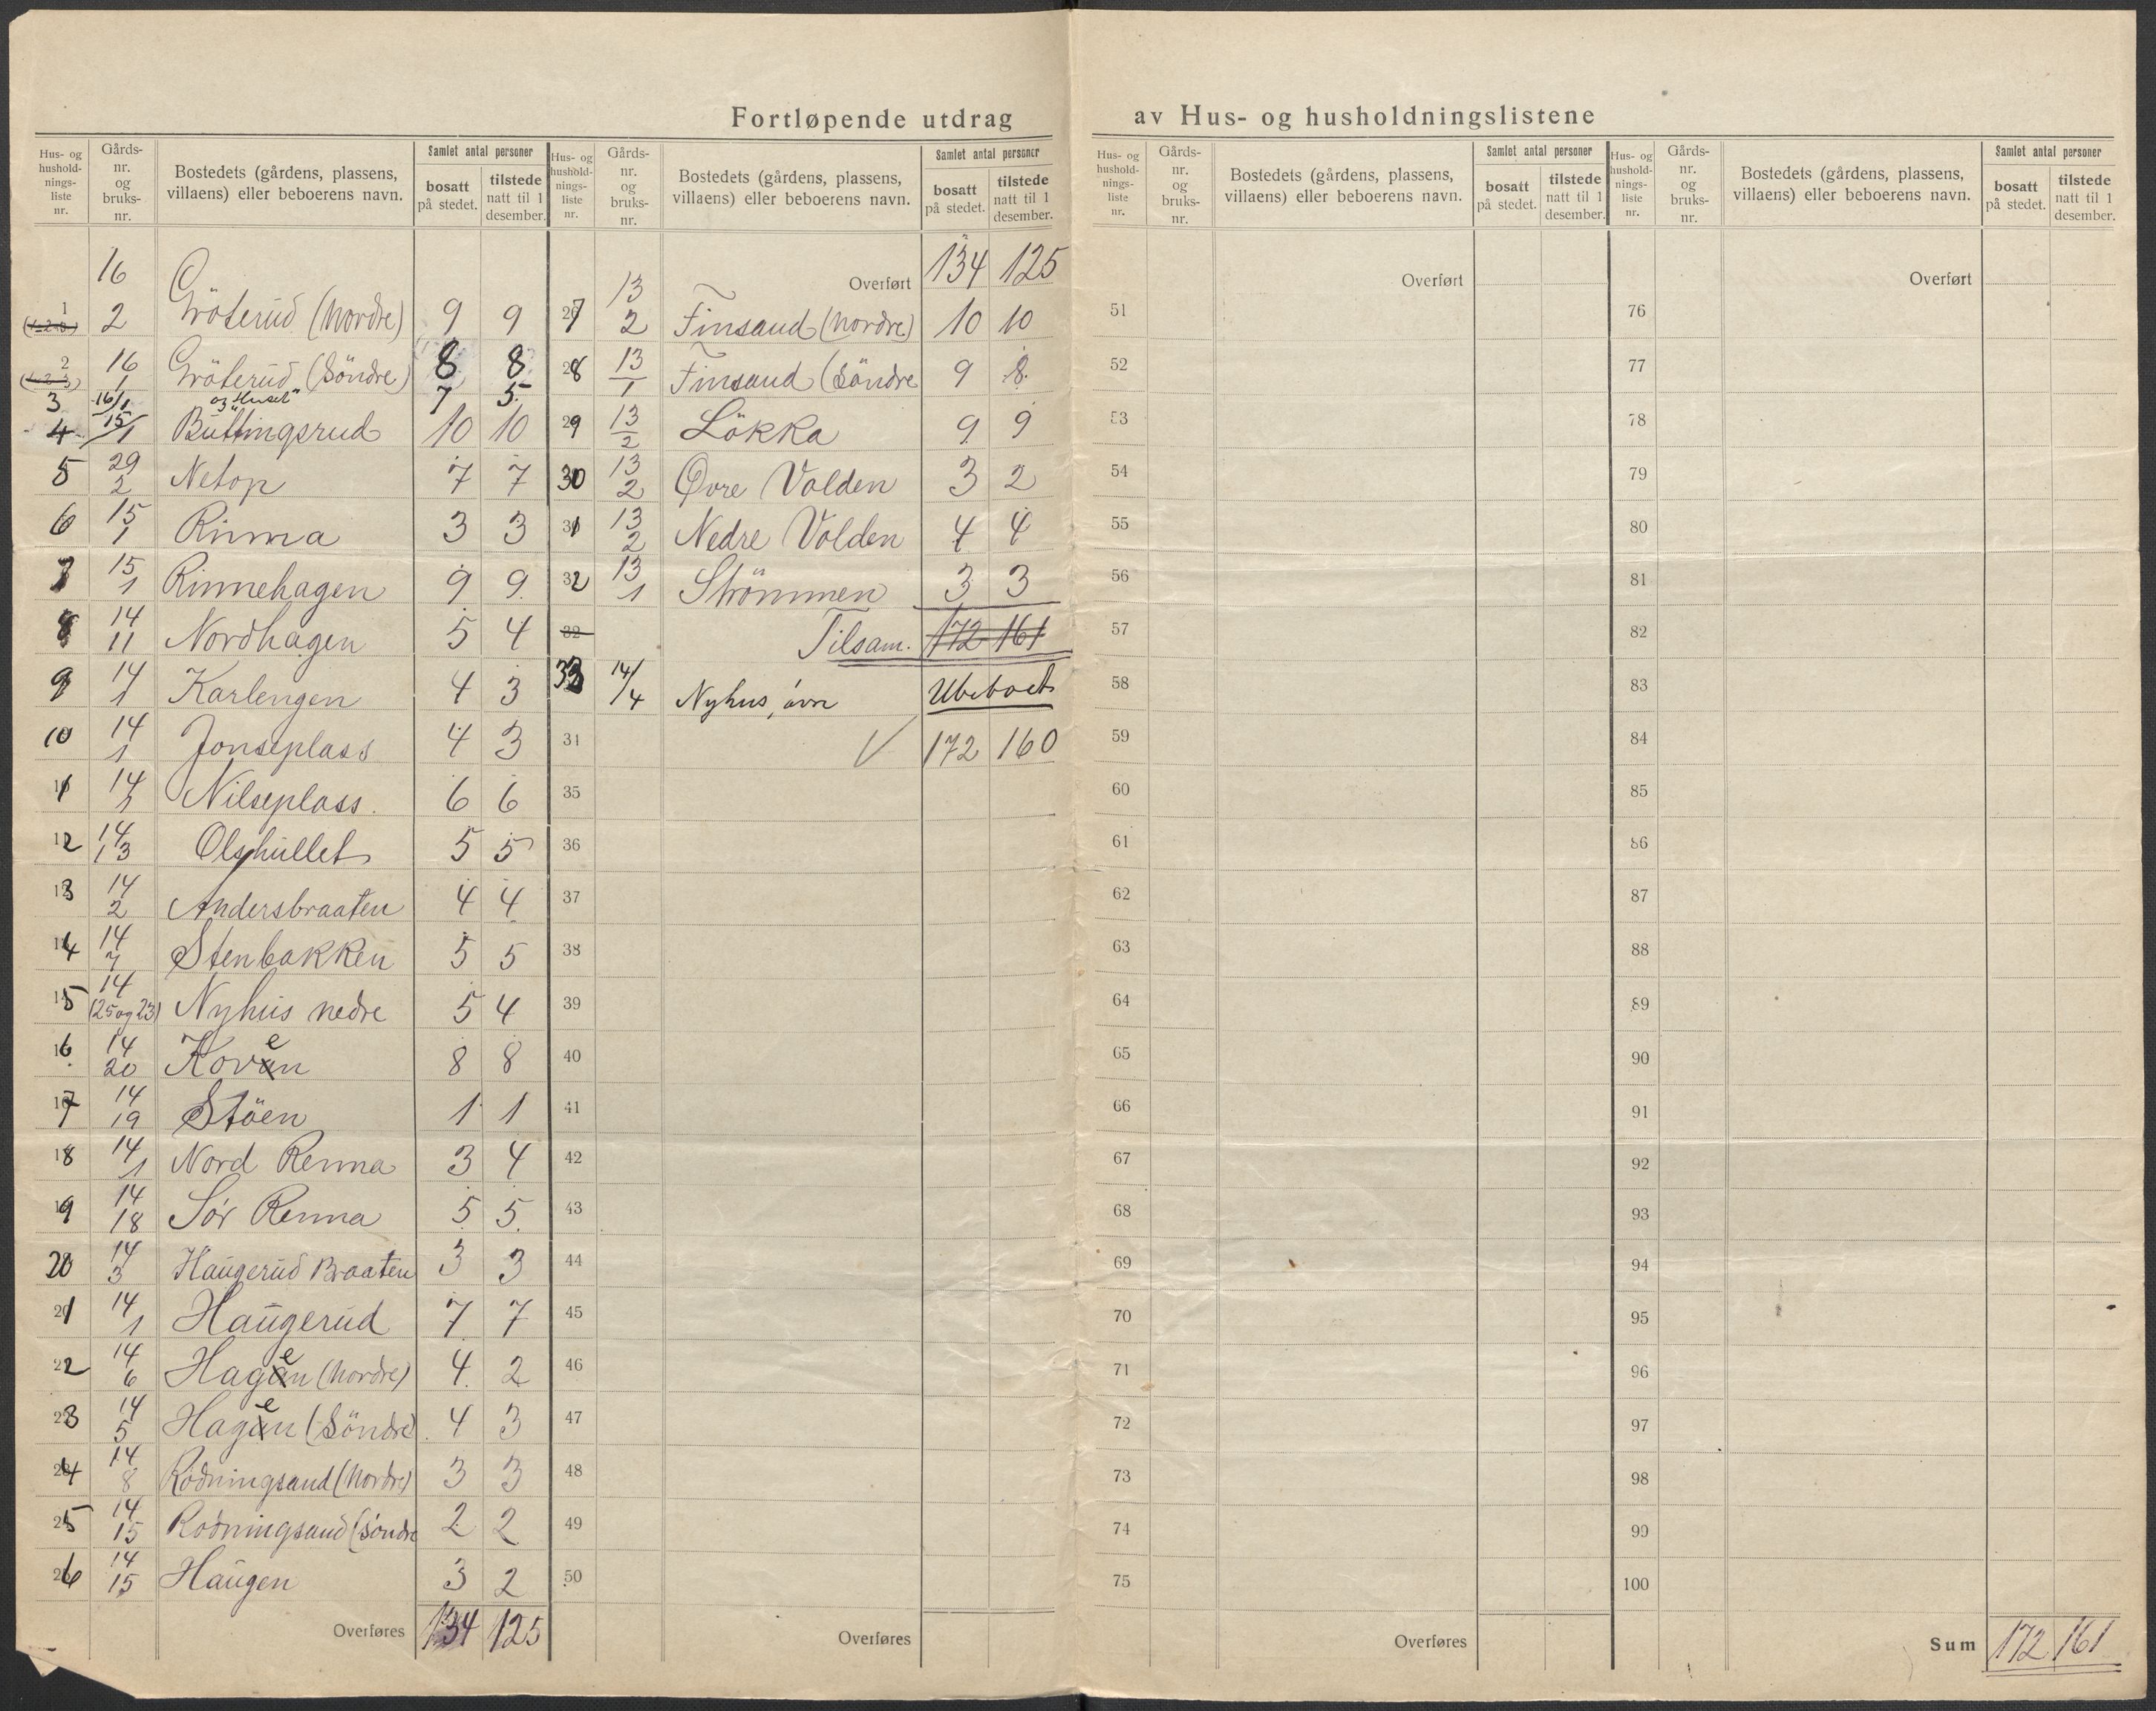 Fortløpende utdrag av Hus- og husholdningslistene
Hus- og hushold-nings-liste nr. | Gårds-nr. og bruks-nr. | Bostedets (gårdens, plassens, villaens) eller beboerens navn. | Samlet antal personer | bosatt på stedet. | tilstede natt til 1 desember.
1 | 16 2 | Gröterud (Nordre) | 9 | 9
2 | 16 1 | Gröterud (Söndre) | 8 | 8
3 | 16/1 | og "Huset" | 7 | 5
4 | 15/1 | Buttingsrud | 10 | 10
5 | 29 2 | Netop | 7 | 7
6 | 15 1 | Rinna | 3 | 3
7 | 15 1 | Rinnehagen | 9 | 9
8 | 14 11 | Nordhagen | 5 | 4
9 | 14 1 | Karlengen | 4 | 3
10 | 14 1 | Jonseplass | 4 | 3
11 | 14 1 | Nilseplass. | 6 | 6
12 | 14 13 | Olshullet | 5 | 5
13 | 14 2 | Andersbraaten | 4 | 4
14 | 14 7 | Stenbakken | 5 | 5
15 | 14 (25 og 23) | Nyhus nedre | 5 | 4
16 | 14 20 | Koven | 8 | 8
17 | 14 19 | Stöen | 1 | 1
18 | 14 1 | Nord Renna | 3 | 4
19 | 14 18 | Sör Renna | 5 | 5
20 | 14 3 | Haugerud Braaten | 3 | 3
21 | 14 1 | Haugerud | 7 | 7
22 | 14 6 | Hagen (Nordre) | 4 | 2
23 | 14 5 | Hagen (Söndre) | 4 | 3
24 | 14 8 | Rödningsand (Nordre) | 3 | 3
25 | 14 15 | Rödningsand (Söndre | 2 | 2
26 | 14 15 | Haugen | 3 | 2
Overføres | 134 | 125
Hus- og hushold-nings-liste nr. | Gårds-nr. og bruks-nr. | Bostedets (gårdens, plassens, villaens) eller beboerens navn. | Samlet antal personer | bosatt på stedet. | tilstede natt til 1 desember.
Overført | 134 | 125
27 | 13 2 | Finsand (Nordre) | 10 | 10
28 | 13 1 | Finsand (Söndre | 9 | 8
29 | 13 2 | Lökka | 9 | 9
30 | 13 2 | Øvre Volden | 3 | 2
31 | 13 2 | Nedre Volden | 4 | 4
32 | 13 1 | Strömmen | 3 | 3
32 | Tilsam. | 172 | 161
33 | 14/4 | Nyhus, övre | Ubeboet
34 | 172 | 160
35
36
37
38
39
40
41
42
43
44
45
46
47
48
49
50
Overføres
Hus- og hushold-nings-liste nr. | Gårds-nr. og bruks-nr. | Bostedets (gårdens, plassens, villaens) eller beboerens navn. | Samlet antal personer | bosatt på stedet. | tilstede natt til 1 desember.
Overført
51
52
53
54
55
56
57
58
59
60
61
62
63
64
65
66
67
68
69
70
71
72
73
74
75
Overføres
Hus- og hushold-nings-liste nr. | Gårds-nr. og bruks-nr. | Bostedets (gårdens, plassens, villaens) eller beboerens navn. | Samlet antal personer | bosatt på stedet. | tilstede natt til 1 desember.
Overført
76
77
78
79
80
81
82
83
84
85
86
87
88
89
90
91
92
93
94
95
96
97
98
99
100
Sum | 172 | 161